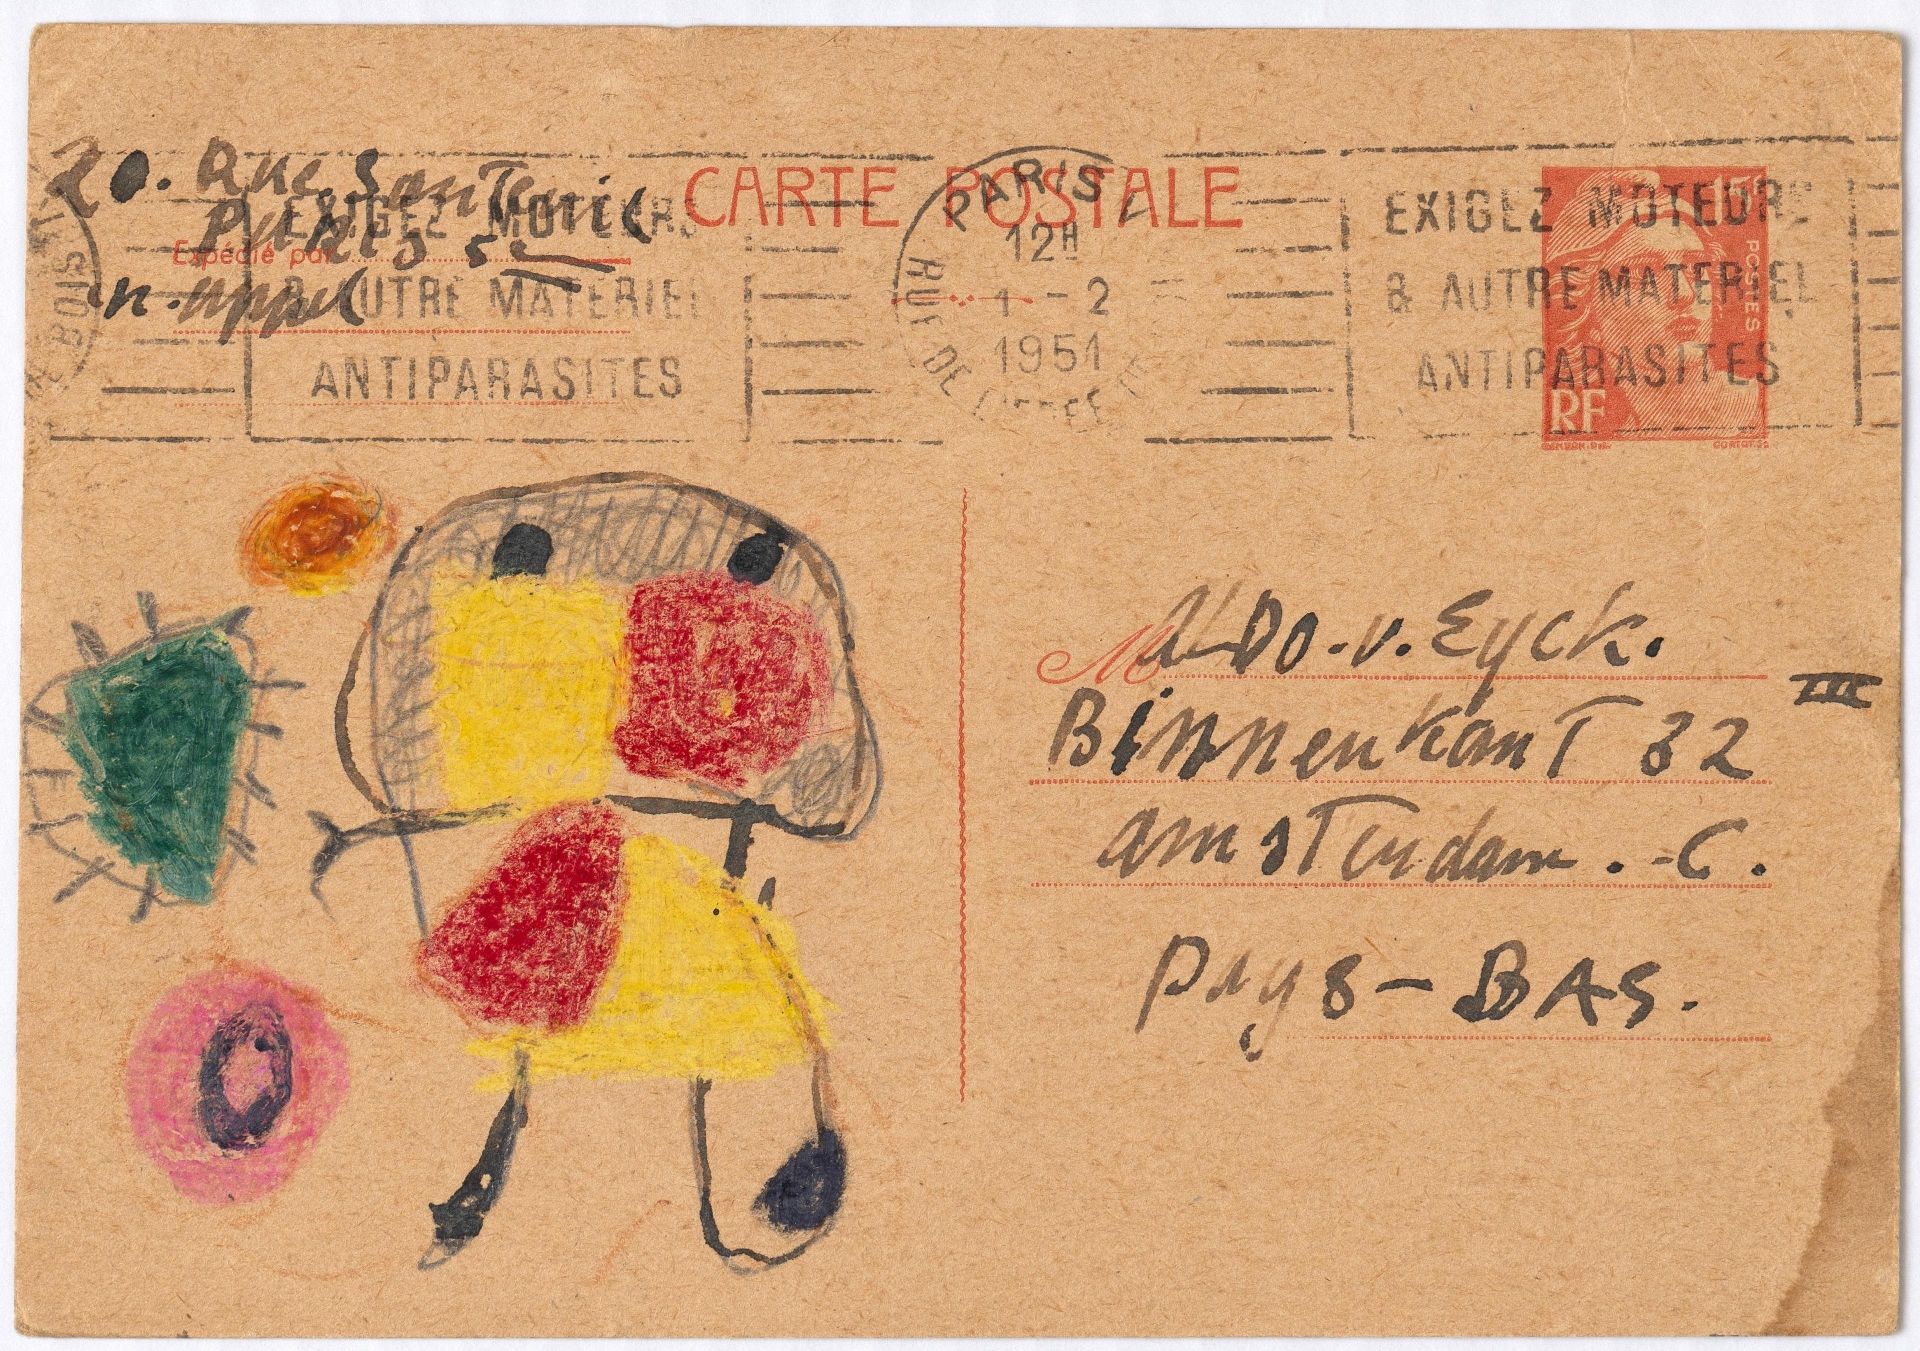 20. Rue Santeuil
Paris 5
Expédié par
n. appel
CARTE POSTALE
EXIGEZ MOTEURS
& AUTRE MATERIEL
ANTIPARASITES
PARIS
12H
1-2
1951
RUE DE
EXIGEZ MOTEURS
& AUTRE MATERIEL
ANTIPARASITES
POSTES
RF
M
ALDO.v.Eyck.
Binnenkant 32 III
amsterdam.-C.
Pays-BAS.